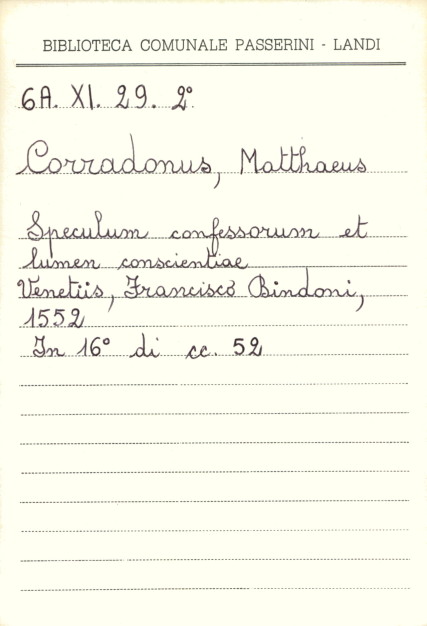 BIBLIOTECA COMUNALE PASSERINI - LANDI
6A. XI. 29. 2°.
Corradonus, Matthaeus
Speculum confessorum et
lumen conscientiae
Venetiis, Francisco Bindoni,
1552
In 16° di cc. 52